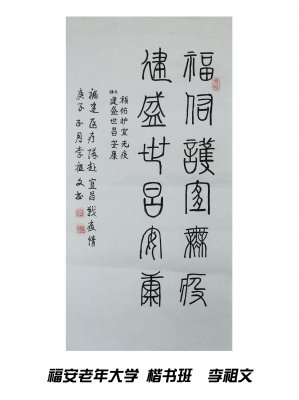 福佑護宜無疫
建盛世昌安康
福佑护宜无疫
建盛世昌安康
福建医疗队赴宜昌战疫情
庚子 月李祖文书
福安老年大学 楷书班 李祖文